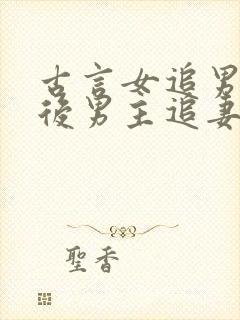 古言女追男
後男主追妻
聖香